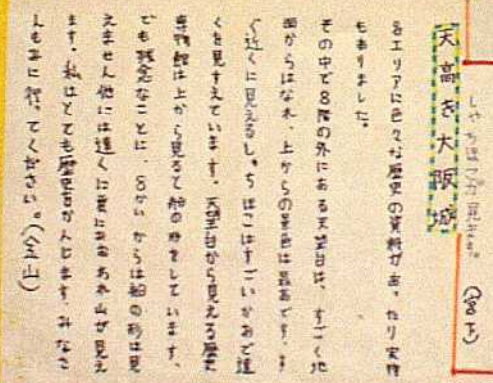 しゃちほこが見えます。(宮下)
天高き大阪城
各エリアに色々な歴史の資料があったり実物
もありました。
その中で8階の外にある天望台は、すごく地
面からはなれ、上からの景色は最高です。す
ぐ近くに見えるしゃちほこはすごいかおで遠
くを見すえています。天望台から見える歴史
博物館は上から見ると船の形をしています。
でも残念なことに、8かいからは船の形は見
えません他には遠くに雲におおわれ山が見え
ます。私はとても歴史をかんじます。みなさ
んもみに行ってください。(金山)